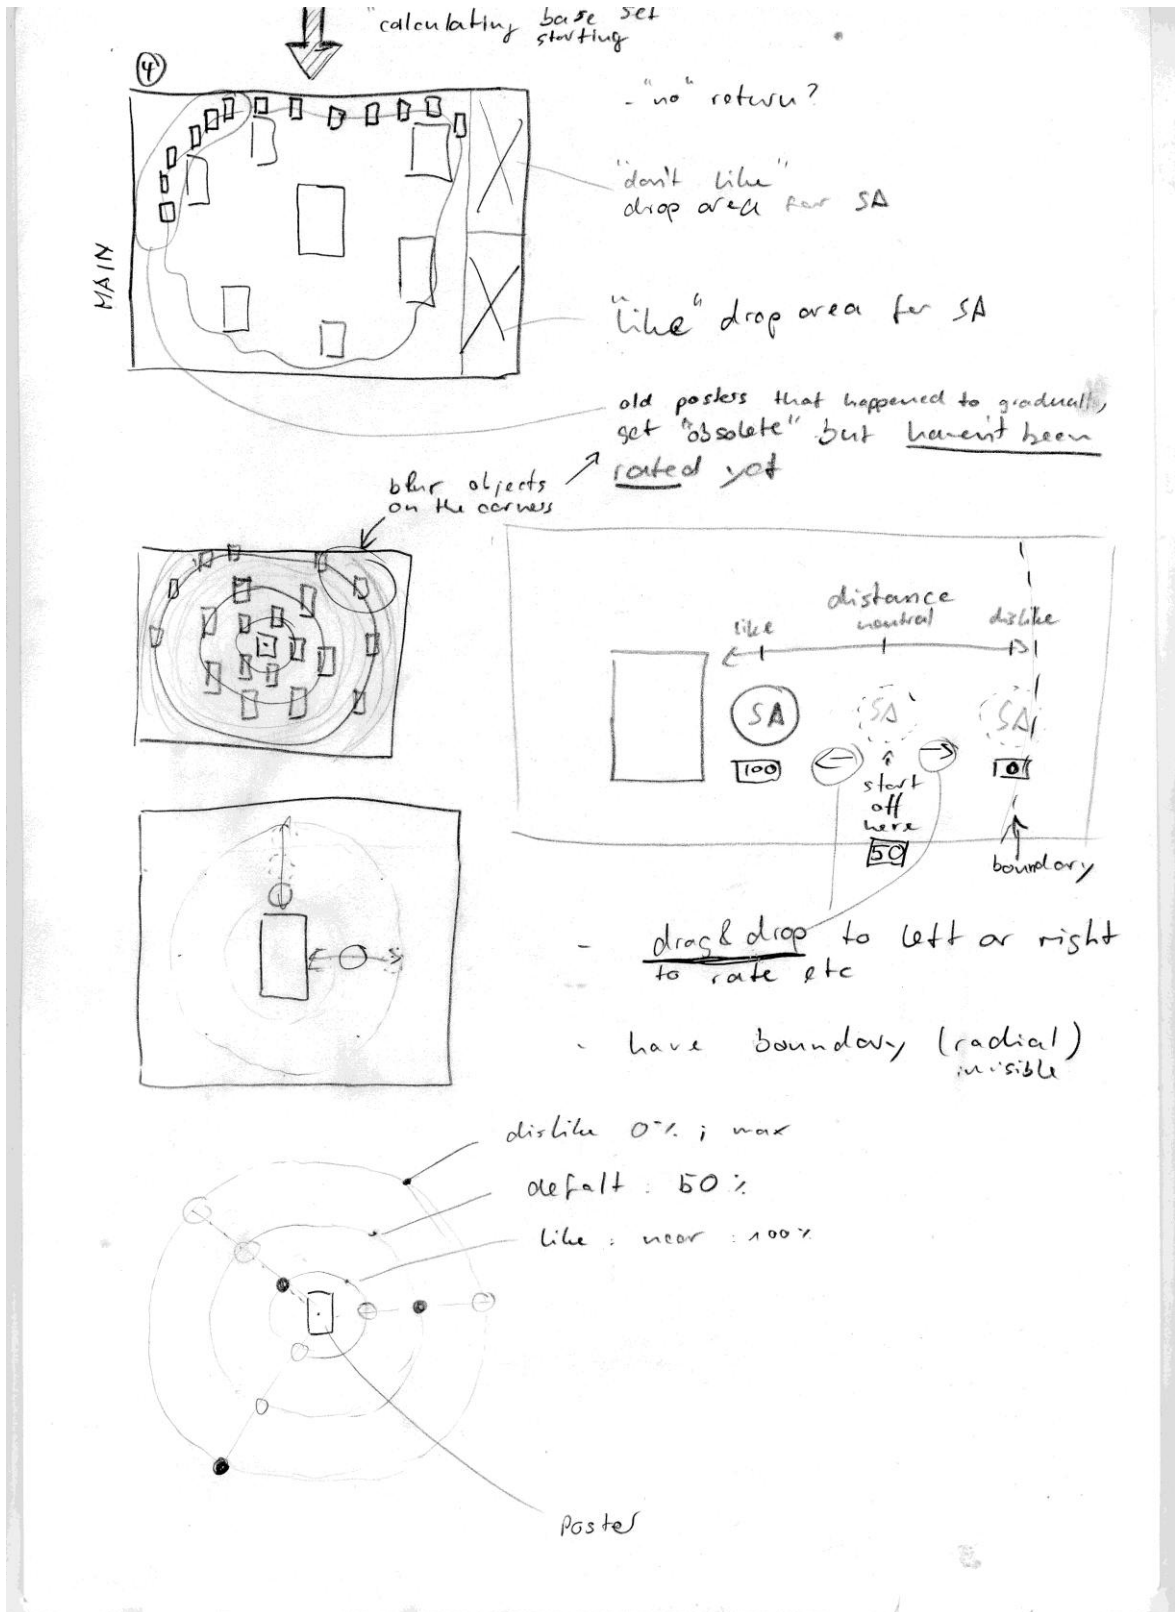 "calculating base set
starting
4
- "no" return?
"don't like"
drop area for SA
MAIN
"like" drop area for SA
old posters that happened to gradually
get "obsolete" but haven't been
rated yet
blur objects
on the corners
distance
like neutral dislike
SA SA SA
100 0
start
off
here
50
boundary
- drag & drop to left or right
to rate etc
- have boundary (radial)
invisible
dislike 0% ; max
defalt : 50%
like : near : 100%
Poster